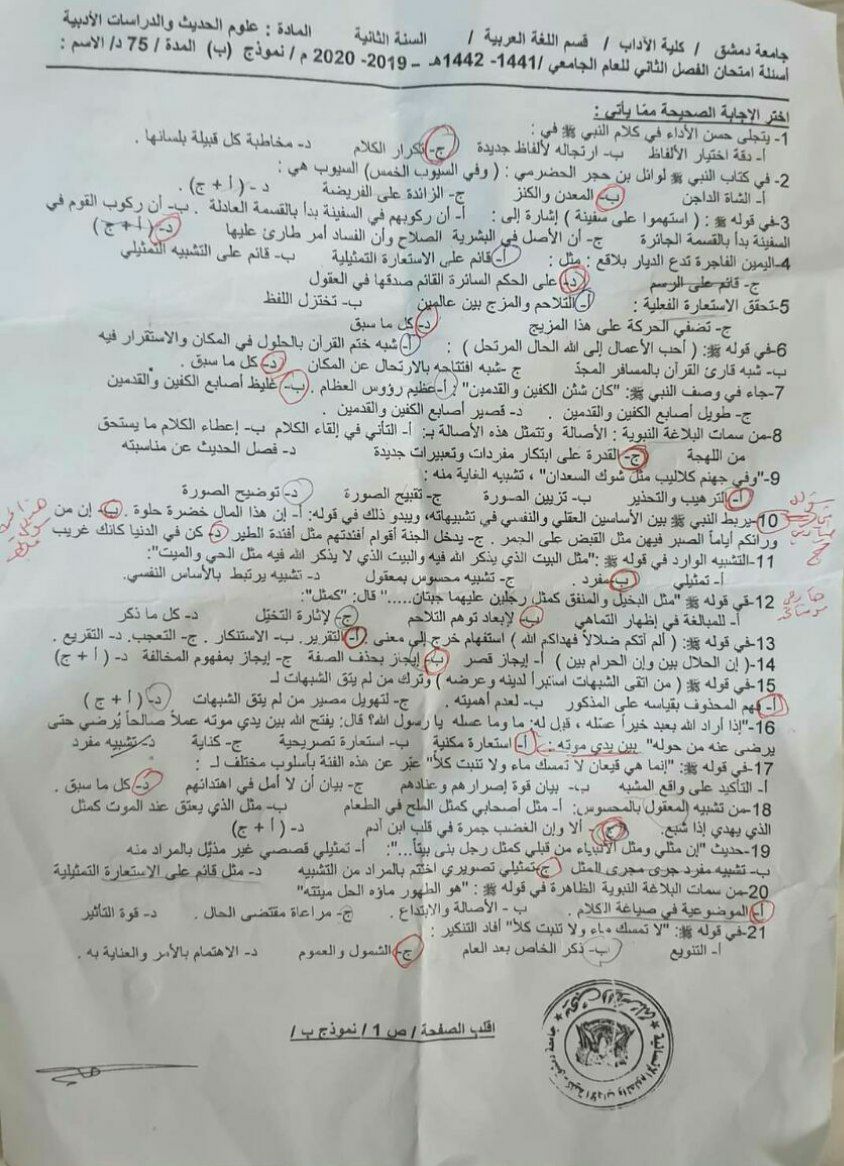 جامعة دمشق / كلية الآداب / قسم اللغة العربية / السنة الثانية المادة : علوم الحديث والدراسات الأدبية
أسئلة امتحان الفصل الثاني للعام الجامعي /1441- 1442هـ – 2019- 2020 م / نموذج (ب) المدة / 75 د/ الاسم :
اختر الإجابة الصحيحة ممّا يأتي :
1- يتجلى حسن الأداء في كلام النبي ﷺ في :
أ- دقة اختيار الألفاظ ب- ارتجاله لألفاظ جديدة ج- تكرار الكلام د- مخاطبة كل قبيلة بلسانها .
2- في كتاب النبي ﷺ لوائل بن حجر الحضرمي : ( وفي السيوب الخمس) السيوب هي :
أ- الشاة الداجن ب- المعدن والكنز ج- الزائدة على الفريضة د - ( أ + ج) .
3-في قوله ﷺ : ( استهموا على سفينة ) إشارة إلى : أ- أن ركوبهم في السفينة بدأ بالقسمة العادلة . ب- أن ركوب القوم في
السفينة بدأ بالقسمة الجائرة ج- أن الأصل في البشرية الصلاح وأن الفساد أمر طارئ عليها د- ( أ + ج )
4-اليمين الفاجرة تدع الديار بلاقع : مثل : أ- قائم على الاستعارة التمثيلية ب- قائم على التشبيه التمثيلي
ج- قائم على الرسم د- على الحكم السائرة القائم صدقها في العقول
5-تحقق الاستعارة الفعلية : أ- التلاحم والمزج بين عالمين ب- تختزل اللفظ
ج- تضفي الحركة على هذا المزيج د- كل ما سبق
6-في قوله ﷺ: ( أحب الأعمال إلى الله الحال المرتحل ) : أ- شبه ختم القرآن بالحلول في المكان والاستقرار فيه
ب- شبه قارئ القرآن بالمسافر المجدّ ج -شبه افتتاحه بالارتحال عن المكان د- كل ما سبق .
7-جاء في وصف النبي ﷺ: "كان شثن الكفين والقدمين" . أ- عظيم رؤوس العظام . ب- غليظ أصابع الكفين والقدمين
ج- طويل أصابع الكفين والقدمين . د- قصير أصابع الكفين والقدمين .
8-من سمات البلاغة النبوية : الأصالة وتتمثل هذه الأصالة بـ: أ- التأني في إلقاء الكلام ب- إعطاء الكلام ما يستحق
من اللهجة ج- القدرة على ابتكار مفردات وتعبيرات جديدة د- فصل الحديث عن مناسبته
9-"وفي جهنم كلاليب مثل شوك السعدان" ، تشبيه الغاية منه :
أ- الترهيب والتحذير ب- تزيين الصورة ج- تقبيح الصورة د- توضيح الصورة
10-يربط النبي ﷺ بين الأساسين العقلي والنفسي في تشبيهاته، ويبدو ذلك في قوله: أ- إن هذا المال خضرة حلوة . ب- إن من
ورائكم أياماً الصبر فيهن مثل القبض على الجمر . ج- يدخل الجنة أقوام أفئدتهم مثل أفئدة الطير د- كن في الدنيا كانك غريب
11-التشبيه الوارد في قوله ﷺ :"مثل البيت الذي يذكر الله فيه والبيت الذي لا يذكر الله فيه مثل الحي والميت":
أ- تمثيلي ب- مفرد . ج- تشبيه محسوس بمعقول د- تشبيه يرتبط بالأساس النفسي.
12-في قوله ﷺ "مثل البخيل والمنفق كمثل رجلين عليهما جبتان....." قال: "كمثل":
أ- للمبالغة في إظهار التماهي ب- لإبعاد توهم التلاحم ج- لإثارة التخيّل د- كل ما ذكر
13-في قوله: ( ألم آتكم ضلالاً فهداكم الله ) استفهام خرج إلى معنى . أ- التقرير. ب- الاستنكار . ج- التعجب. د- التقريع .
14-( إن الحلال بين وإن الحرام بين ) أ- إيجاز قصر ب- إيجاز بحذف الصفة ج- إيجاز بمفهوم المخالفة د- ( أ + ج)
15-في قوله ﷺ ( من اتقى الشبهات استبرأ لدينه وعرضه ) وترك من لم يتق الشبهات لـ
أ- فهم المحذوف بقياسه على المذكور ب- لعدم أهميته . ج- لتهويل مصير من لم يتق الشبهات د- ( أ + ج )
16-"إذا أراد الله بعبد خيراً عسله ، قيل له: ما وما عسله يا رسول الله؟ قال: يفتح الله بين يدي موته عملاً صالحاً يُرضي حتى
يرضى عنه من حوله" بين يدي موته : أ- استعارة مكنية ب- استعارة تصريحية ج- كناية د- تشبيه مفرد
17-في قوله ﷺ: "إنما هي قيعان لا تمسك ماء ولا تنبت كلأ" عبّر عن هذه الفئة بأسلوب مختلف لـ :
أ- التأكيد على واقع المشبه ب- بيان قوة إصرارهم وعنادهم ج- بيان أن لا أمل في اهتدائهم د- كل ما سبق .
18-من تشبيه المعقول بالمحسوس: أ- مثل أصحابي كمثل الملح في الطعام ب- مثل الذي يعتق عند الموت كمثل
الذي يهدي إذا شبع. ج- ألا وإن الغضب جمرة في قلب ابن آدم د- ( أ + ج)
19-حديث "إن مثلي ومثل الأنبياء من قبلي كمثل رجل بنى بيتاً...": أ- تمثيلي قصصي غير مذيّل بالمراد منه
ب- تشبيه مفرد جرى مجرى المثل ج- تمثيلي تصويري اختتم بالمراد من التشبيه د- مثل قائم على الاستعارة التمثيلية
20-من سمات البلاغة النبوية الظاهرة في قوله ﷺ : "هو الطهور ماؤه الحل ميتته"
أ- الموضوعية في صياغة الكلام . ب - الأصالة والابتداع . ج- مراعاة مقتضى الحال . د- قوة التأثير
21-في قوله ﷺ: "لا تمسك ماء ولا تنبت كلأ" أفاد التنكير :
أ- التنويع ب- ذكر الخاص بعد العام ج- الشمول والعموم د- الاهتمام بالأمر والعناية به .
اقلب الصفحة / ص 1 / نموذج ب /